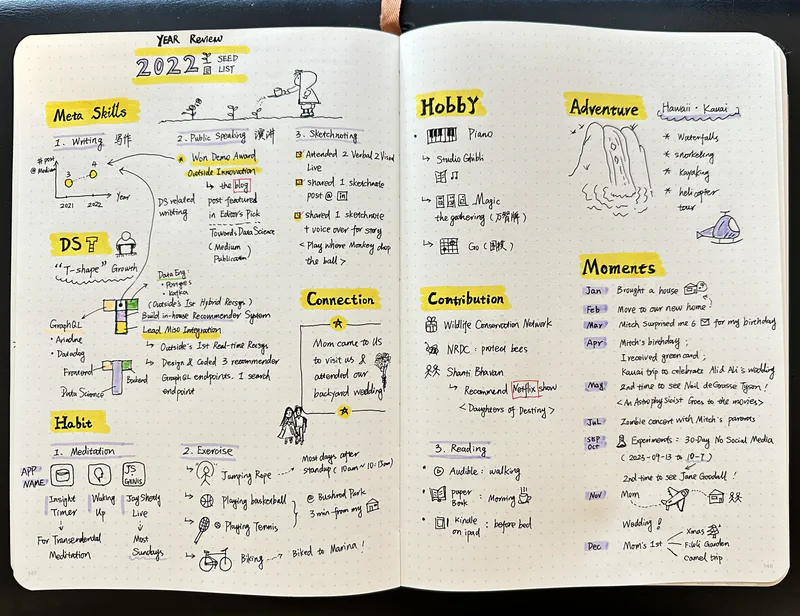 YEAR Review
2022 SEED LIST
Meta Skills
1. Writing 写作
# post @ Medium
3
4
2021 2022 Year
2. Public Speaking 演讲
Won Demo Award
Outside Innovation
↳ the blog
post featured
in Editor's Pick
Towards Data Science
(Medium
Publication)
DS related
writing
3. Sketchnoting
Attended 2 Verbal 2 Visual
Live
shared 1 sketchnote
post @ in
shared 1 sketchnote
+ voice over for story
< Play where Monkey drop
the ball >
DS T
"T-shape" Growth
Data Eng:
• Postgres
• Kafka
(Outside's 1st Hybrid Recsys)
Build in-house Recommender System
Lead Miso Integration
↳ Outside's 1st Real-time Recsys
↳ Design & Coded 3 recommender
GraphQL endpoints. 1 search
endpoint
GraphQL
• Ariadne
• Datadog
Frontend
Backend
Data Science
Connection
Mom came to US
to visit us &
attended our
backyard wedding
Habit
1. Meditation
APP NAME
JS GENIS
Insight Timer
Waking Up
Jay Shetty Live
For Transendental
Meditation
Most
Sundays
2. Exercise
Jumping Rope
Most days after
standup (10am ~ 10:15am)
Playing basketball
Playing Tennis
@ Bushrod Park
3 min from my
Biking → Biked to Marina!
147
Hobby
Piano
↳ Studio Ghibli
↳ Magic
the gathering (万智牌)
↳ Go (围棋)
Contribution
Wildlife Conservation Network
NRDC: protect bees
Shanti Bhavan
↳ Recommend Netflix show
< Daughters of Destiny >
3. Reading
Audible: walking
paper Book: Morning
Kindle on ipad: before bed
Adventure
Hawaii • Kauai
* Waterfalls
* snorkeling
* Kayaking
* helicopter
tour
Moments
Jan Brought a house
Feb Move to our new home
Mar Mitch surprised me 6 for my birthday
Apr Mitch's birthday;
I received green card;
Kauai trip to celebrate Ali's wedding
May 2nd time to see Neil deGrasse Tyson!
< An Astrophysicist Goes to the movies >
Jul Zombie concert with Mitch's parents
SEP Oct Experiments: 30-Day No Social Media
2nd time to see Jane Goodall!
Nov Mom
Wedding!
Dec Mom's 1st
Xmas
Filoli Garden
Camel trip
148